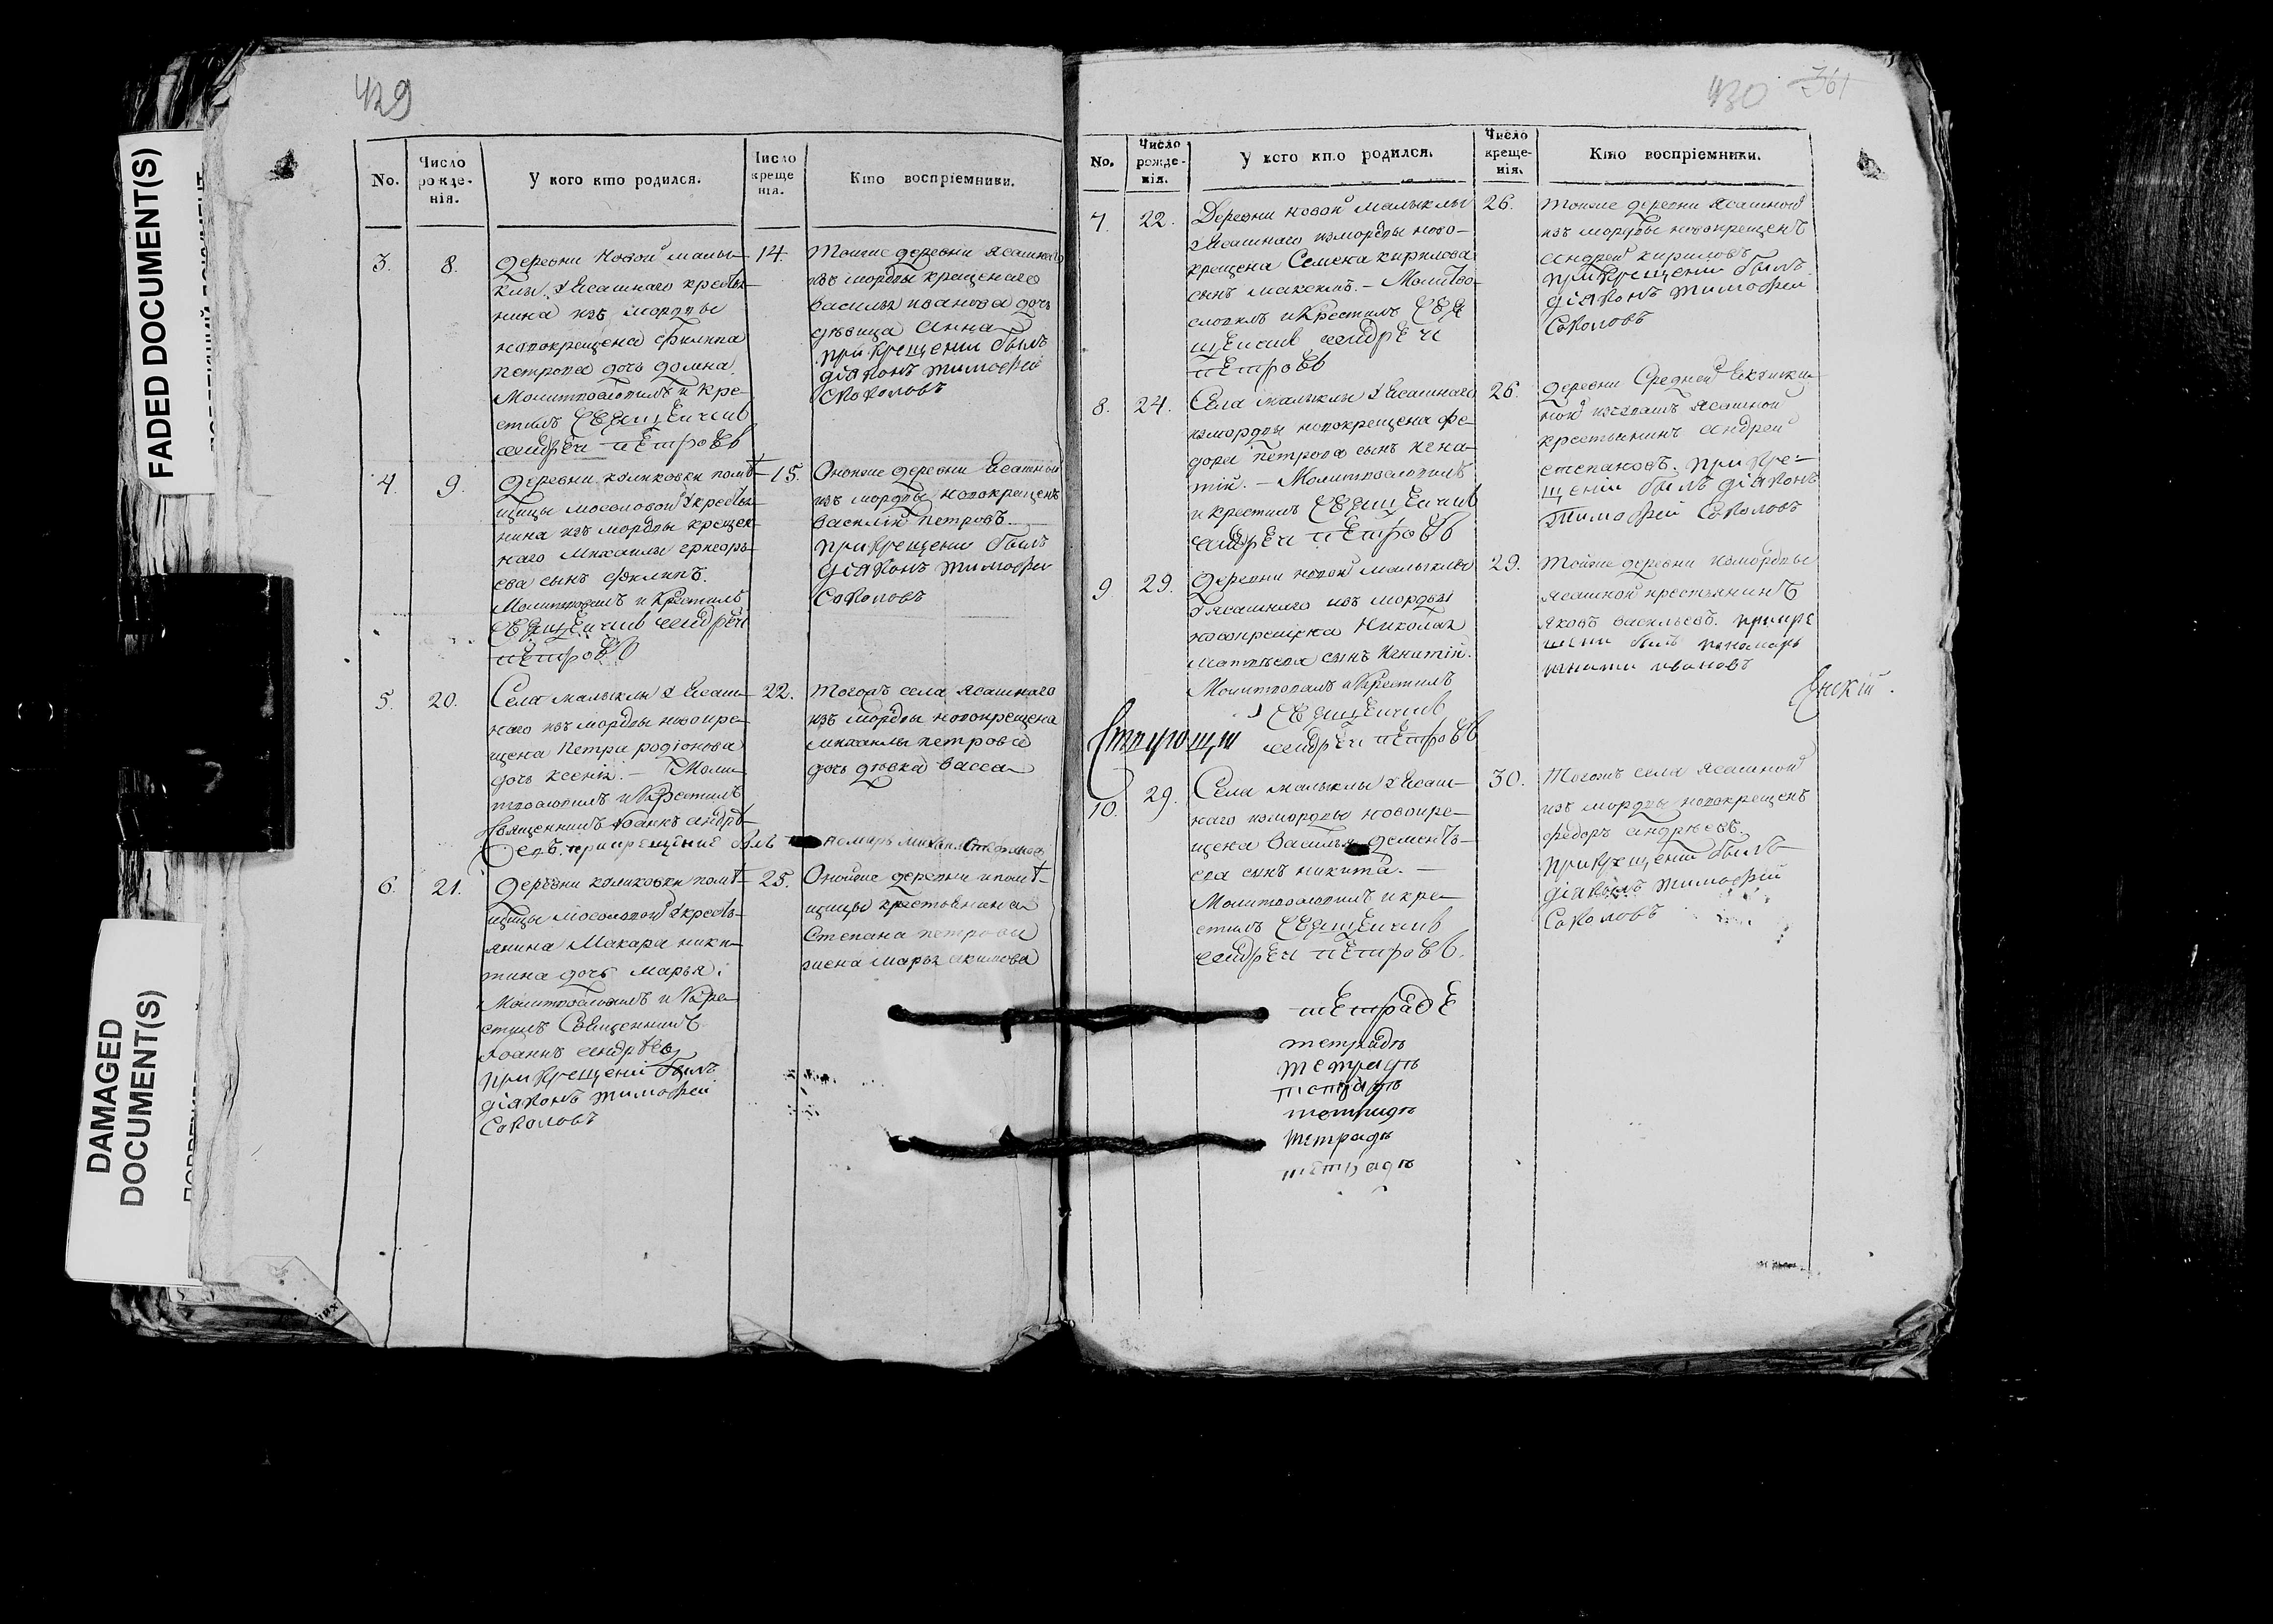 FADED DOCUMENT(S)
DAMAGED
DOCUMENT(S)
429
No.
Число
рожде-
нія.
У кого кто родился.
Число
креще
нія.
Кто воспріемники.
3.
8.
деревни Новой малы-
клы у Ясашнаго кресть-
нина изъ мордвы
новокрещена Филипа
петрова дочь домна
Молитвословилъ и кре-
стилъ священникъ
андреи петровъ
14.
Тойже деревни Ясашнаго
изъ мордвы крещенаго
василья иванова дочь
девица Анна
при крещении былъ
діаконъ тимофей
Соколовъ
4.
9.
деревни куликовки помѣ-
щицы мосоловой у кресть-
нина изъ мордвы крещен-
наго Михаила
ева сынъ Филипъ.
Молитвовалъ и крестилъ
священникъ андреи
петровъ
15.
Оной же деревни Ясашной
изъ мордвы новокрещенъ
василій петровъ.
при крещении былъ
діаконъ тимофеи
Соколовъ
5.
20.
Села малыклы у Ясаш-
наго изъ мордвы новокре-
щена петра родіонова
дочь ксенія. – Моли-
твословилъ и крестилъ
священникъ Іоаннъ андрѣ-
евъ. при крещение былъ
22.
Тогожъ села Ясашнаго
изъ мордвы новокрещена
михаилы петрова
дочь девка васса
6.
21.
деревни куликовки помѣ-
щицы мосоловой у кресть-
янина Макара ники-
тина дочь марья.
Молитвовалъ и кре-
стилъ Священникъ
Іоаннъ андрѣевъ
при крещеніи былъ
діаконъ тимофей
Соколовъ
25.
Онойже деревни и помѣ-
щицы крестьянина
Степана петрова
жена марья акимова
430 361
No.
Число
рожде-
нія.
У кого кто родился.
Число
креще-
нія.
Кто воспріемники.
7.
22.
Деревни новой малыклы
у Ясашнаго из мордвы ново-
крещена Семена кирилова
сынъ максимъ. – Молитво-
словилъ и крестилъ свя
щенникъ андреи
петровъ
26.
Тойже деревни Ясашной
изъ мордвы новокрещенъ
андрей кириловъ
при крещении былъ
діаконъ тимофеи
Соколовъ
8.
24.
Села малыклы у Ясашнаго
из мордвы новокрещена фе-
дора петрова сынъ игна-
тій. – Молитвословилъ
и крестилъ священникъ
андреи петровъ
26.
деревни Средней
ной изчувашъ Ясашной
крестьянинъ андреи
степановъ. при кре-
щеніи былъ діаконъ
тимофеи Соколовъ
9
29.
деревни новой малыклы
у Ясашнаго изъ мордвы
новокрещена Николая
матвѣева сынъ игнатій.
Молитвовалъ и крестилъ
священникъ
андреи петровъ
29.
Тойже деревни из мордвы
ясашной крестьянинъ
яковъ васильевъ. при кре
щении былъ пономарь
ивановъ
10.
29.
Села малыклы у Ясаш-
наго из мордвы новокре-
щена василья дементь-
ева сынъ никита. –
Молитвословилъ и кре-
стилъ священникъ
андреи петровъ.
30.
Тогожъ села Ясашной
изъ мордвы новокрещенъ
федоръ андреевъ.
при крещении былъ
діаконъ тимофей
Соколовъ
тетраде
тетрадь
тетрадь
тетрадь
тетрадь
тетрадь
тетрадь